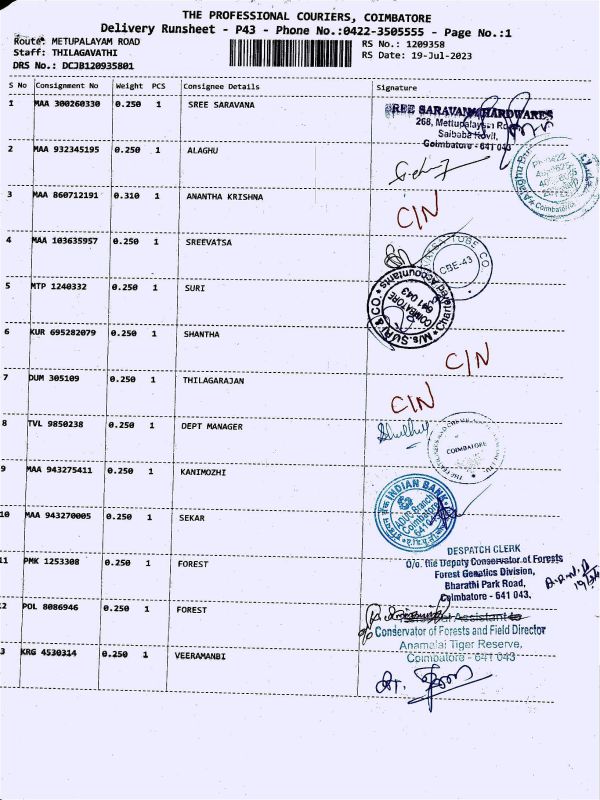 THE PROFESSIONAL COURIERS, COIMBATORE
Delivery Runsheet - P43 - Phone No.:0422-3505555 - Page No.:1
Route: METUPALAYAM ROAD RS No.: 1209358
Staff: THILAGAVATHI RS Date: 19-Jul-2023
DRS No.: DCJB120935801
S No Consignment No Weight PCS Consignee Details Signature
1 MAA 300260330 0.250 1 SREE SARAVANA
SREE SARAVANA HARDWARES
268, Mettupalayam Road
Saibaba Kovil,
Coimbatore - 641 043
2 MAA 932345195 0.250 1 ALAGHU
Coimbatore
3 MAA 860712191 0.310 1 ANANTHA KRISHNA
C/N
4 MAA 103635957 0.250 1 SREEVATSA
TUBE CO.
CBE-43
5 MTP 1240332 0.250 1 SURI
M/s. SURI & CO.
Chartered Accountants
COIMBATORE
641 043
6 KUR 695282079 0.250 1 SHANTHA
C/N
7 DUM 305109 0.250 1 THILAGARAJAN
C/N
8 TVL 9850238 0.250 1 DEPT MANAGER
COIMBATORE
9 MAA 943275411 0.250 1 KANIMOZHI
INDIAN BANK
ADUC Branch
Coimbatore
10 MAA 943270005 0.250 1 SEKAR
11 PMK 1253308 0.250 1 FOREST
DESPATCH CLERK
O/o. the Deputy Conservator of Forests
Forest Genetics Division,
Bharathi Park Road,
Coimbatore - 641 043.
12 POL 8086946 0.250 1 FOREST
Assistant to
Conservator of Forests and Field Director
Anamalai Tiger Reserve,
Coimbatore - 641 043
3 KRG 4530314 0.250 1 VEERAMANBI